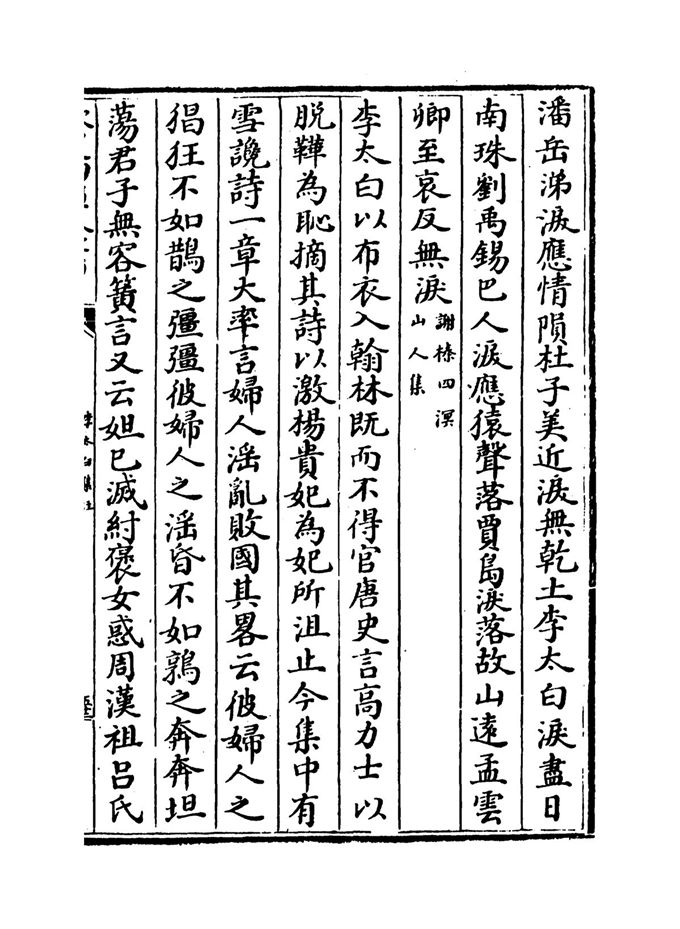 潘岳涕淚應情隕杜子美近淚無乾土李太白淚盡日
南珠劉禹錫巴人淚應猿聲落賈島淚落故山遠孟雲
卿至哀反無淚謝榛四溟
山人集
李太白以布衣入翰林既而不得官唐史言高力士以
脱鞾為恥摘其詩以激楊貴妃為妃所沮止今集中有
雪讒詩一章大率言婦人淫亂敗國其畧云彼婦人之
猖狂不如鵲之彊彊彼婦人之淫昏不如鶉之奔奔坦
蕩君子無容簧言又云妲已滅紂褒女惑周漢祖吕氏
李太白集注